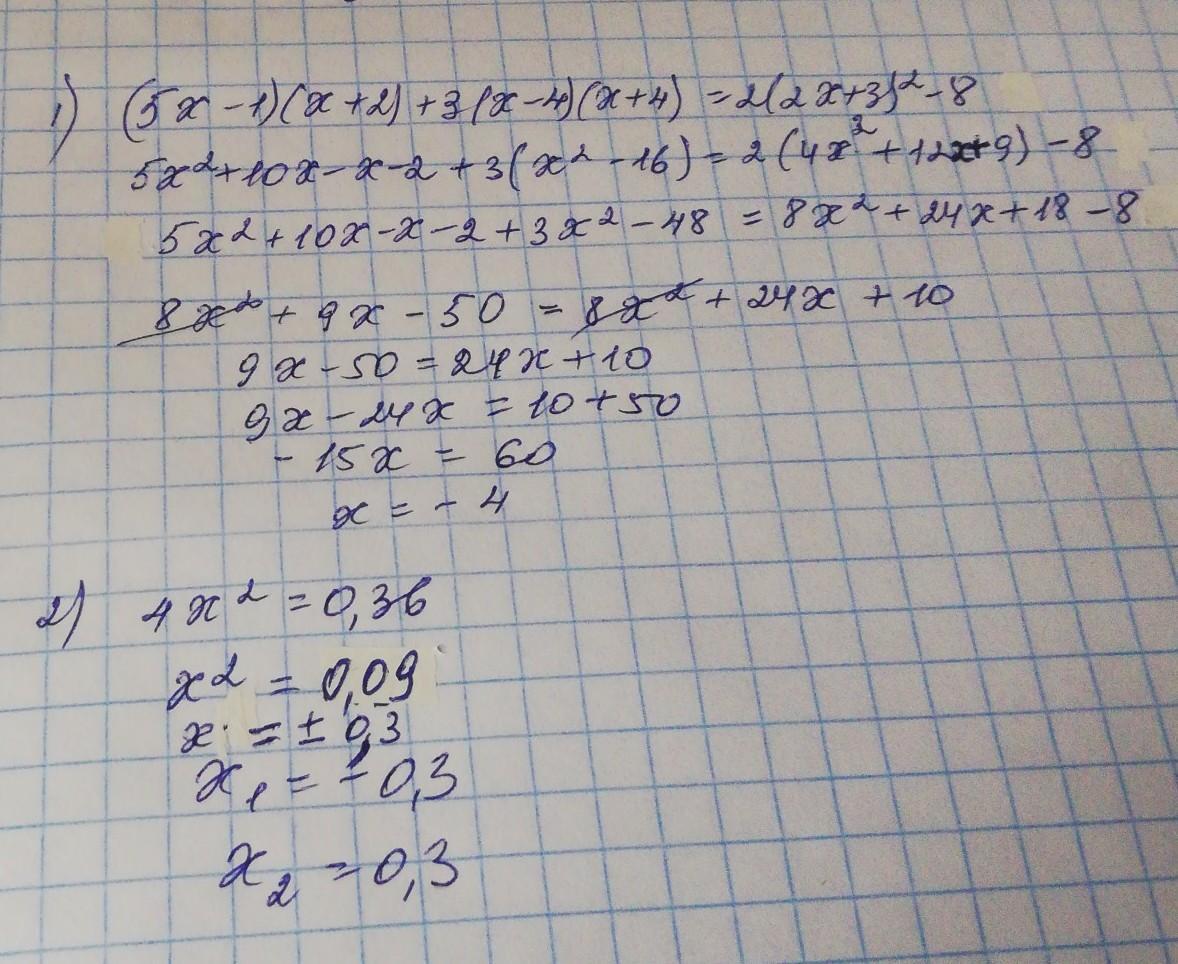 1) (5x-1)(x+2)+3(x-4)(x+4) = 2(2x+3)²-8
5x²+10x-x-2+3(x²-16) = 2(4x²+12x+9)-8
5x²+10x-x-2+3x²-48 = 8x²+24x+18-8
8x²+9x-50 = 8x²+24x+10
9x-50 = 24x+10
9x-24x = 10+50
-15x = 60
x = -4
2) 4x² = 0,36
x² = 0,09
x = ±0,3
x₁ = -0,3
x₂ = 0,3